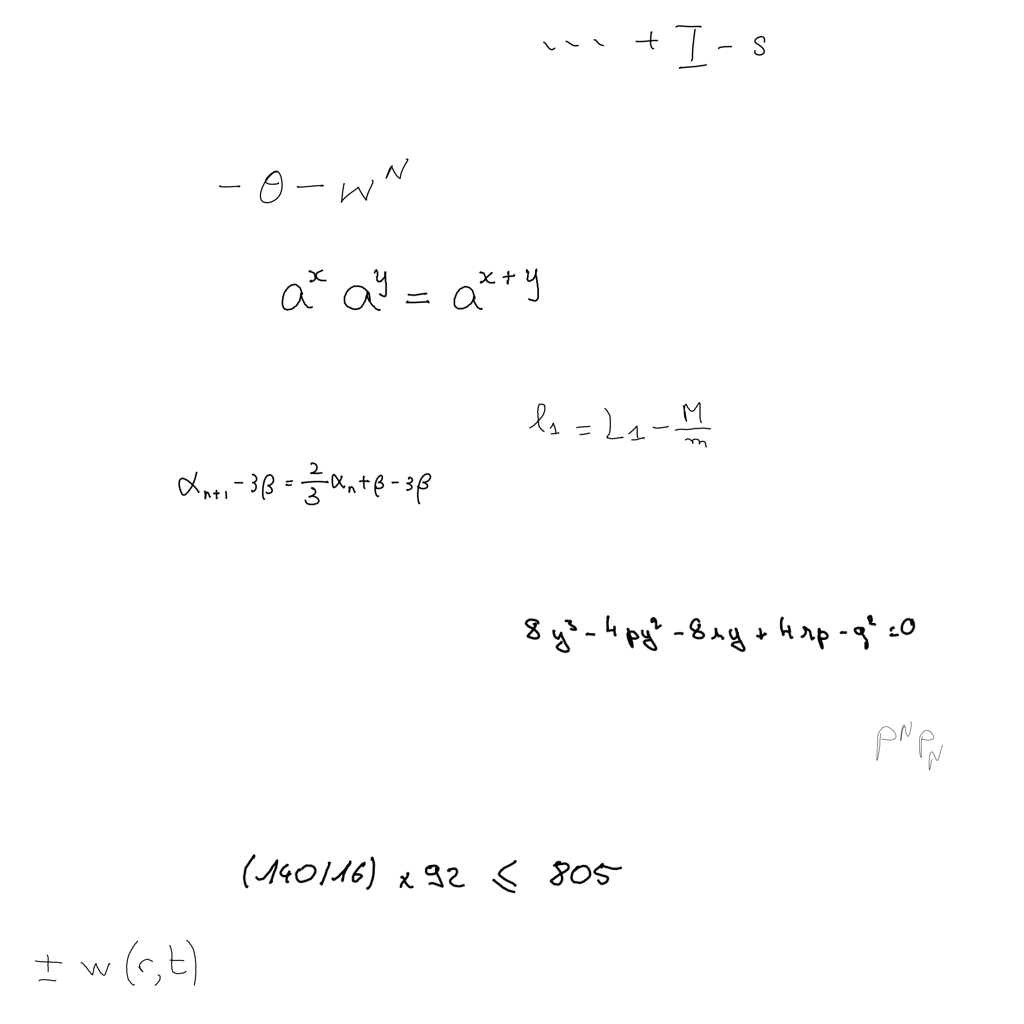 ... + I - s
- θ - w^N
a^x a^y = a^{x+y}
l_1 = L_1 - \frac{M}{m}
α_{n+1} - 3β = \frac{2}{3} α_n + β - 3β
8y^3 - 4py^2 - 8ry + 4rp - q^2 = 0
p^N p_N
(140/16) × 92 ≤ 805
± w(r,t)